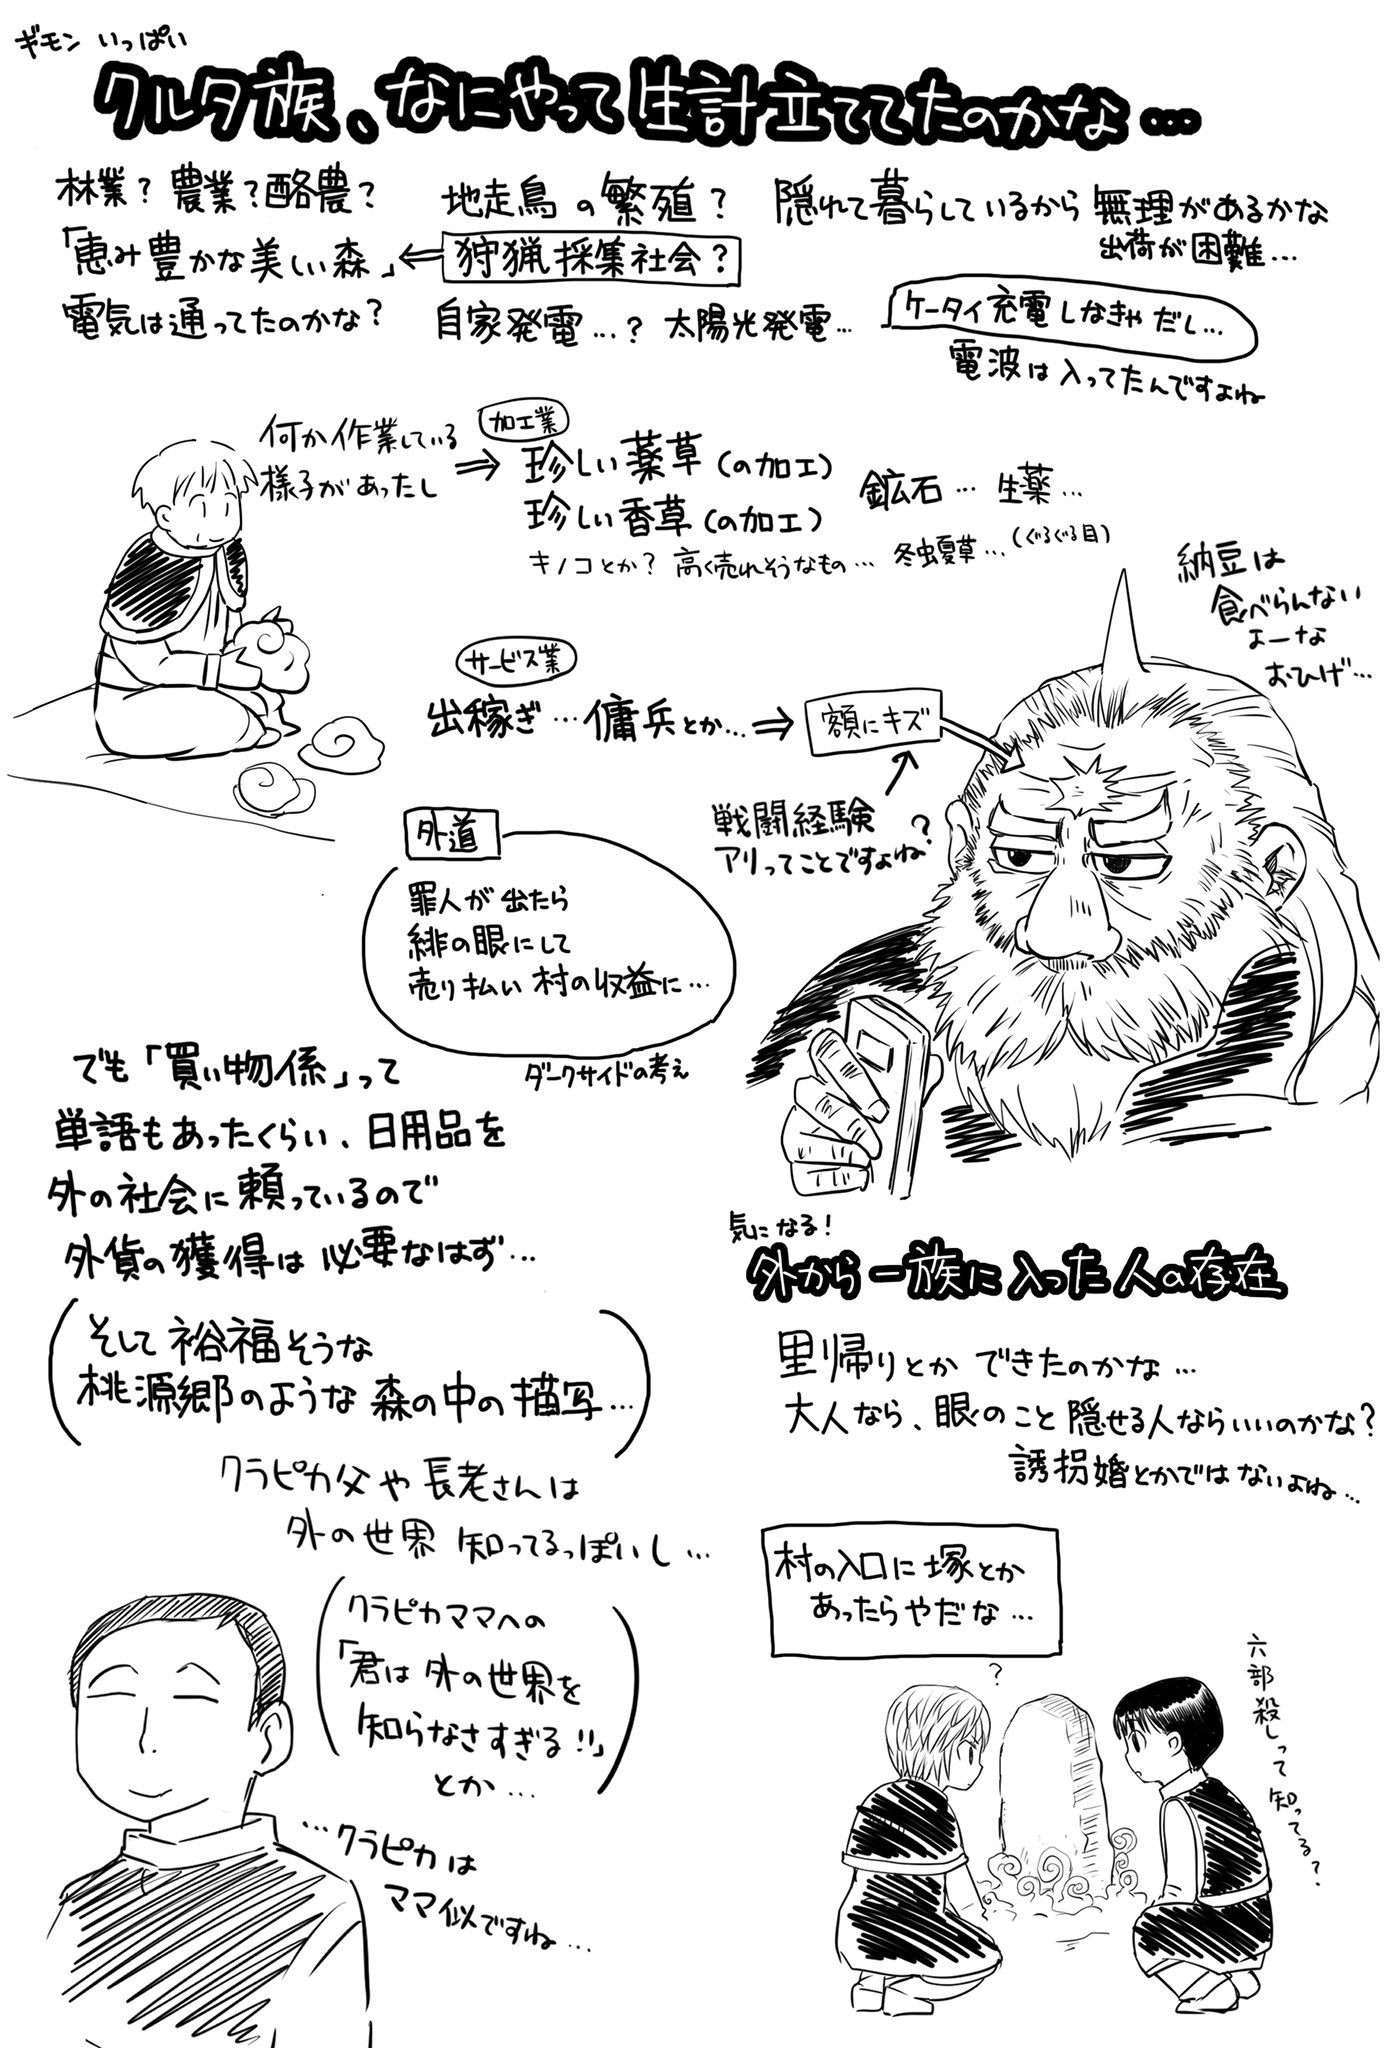 ギモン いっぱい
クルタ族、なにやって生計立ててたのかな…
林業？ 農業？酪農？
地走鳥の繁殖？
隠れて暮らしているから無理があるかな
出荷が困難…
「恵み豊かな美しい森」←狩猟採集社会？
電気は通ってたのかな？
自家発電…？ 太陽光発電…
ケータイ充電しなきゃだし…
電波は入ってたんですよね
何か作業している
様子があったし
⇒
加工業
珍しい薬草（の加工）
珍しい香草（の加工）
鉱石… 生薬…
キノコとか？ 高く売れそうなもの… 冬虫夏草…（ぐるぐる目）
納豆は
食べらんない
よーな
おひげ…
サービス業
出稼ぎ…傭兵とか…⇒
額にキズ
戦闘経験
アリってことですよね？
外道
罪人が出たら
緋の眼にして
売り払い村の収益に…
ダークサイドの考え
でも「買い物係」って
単語もあったくらい、日用品を
外の社会に頼っているので
外貨の獲得は必要なはず…
（そして裕福そうな
桃源郷のような森の中の描写…）
クラピカ父や長老さんは
外の世界 知ってるっぽいし…
（クラピカママへの
「君は外の世界を
知らなさすぎる!!」
とか…）
…クラピカは
ママ似ですね…
気になる！
外から一族に入った人の存在
里帰りとかできたのかな…
大人なら、眼のこと隠せる人ならいいのかな？
誘拐婚とかではないよね…
村の入口に塚とか
あったらやだな…
？
六部殺しって知ってる？